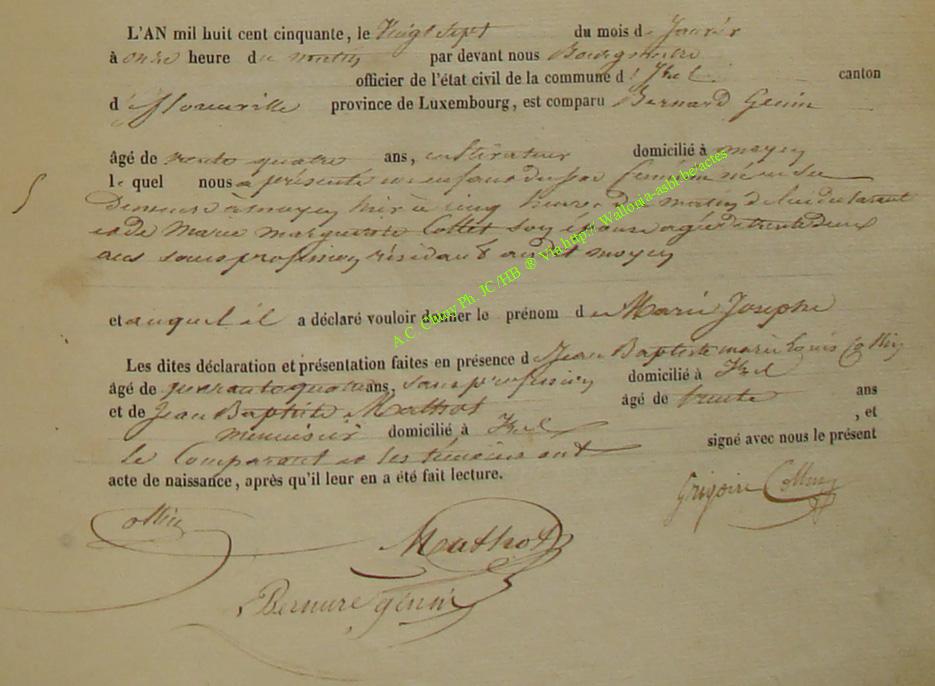 L'AN mil huit cent cinquante, le Vingt Sept du mois de Janvier
à onze heure du matin par devant nous Bourgmestre
officier de l'état civil de la commune d'Izel canton
d' province de Luxembourg, est comparu Bernard Genin
âgé de trente quatre ans, domicilié à moyen
le quel nous a présenté un enfant du sexe féminin né en sa
demeure à moyen hier à cinq heures du matin de lui déclarant
et de Marie Marguerite Collet son épouse agée de trente deux
ans sans profession résidant au dit moyen
et auquel il a déclaré vouloir donner le prénom de Marie Josephe
Les dites déclaration et présentation faites en présence de Jean Baptiste marie Louis Collin
âgé de quarante quatre ans, sans profession domicilié à Izel
et de Jean Baptiste Mathot âgé de trente ans
menuisier domicilié à Izel , et
le Comparant et les témoins ont signé avec nous le présent
acte de naissance, après qu'il leur en a été fait lecture.
Grégoire Collin
Collin
Mathot
Bernard genin
A.C. Chiny Ph. JC /HB ® Via http:// Wallonia-asbl.be/actes